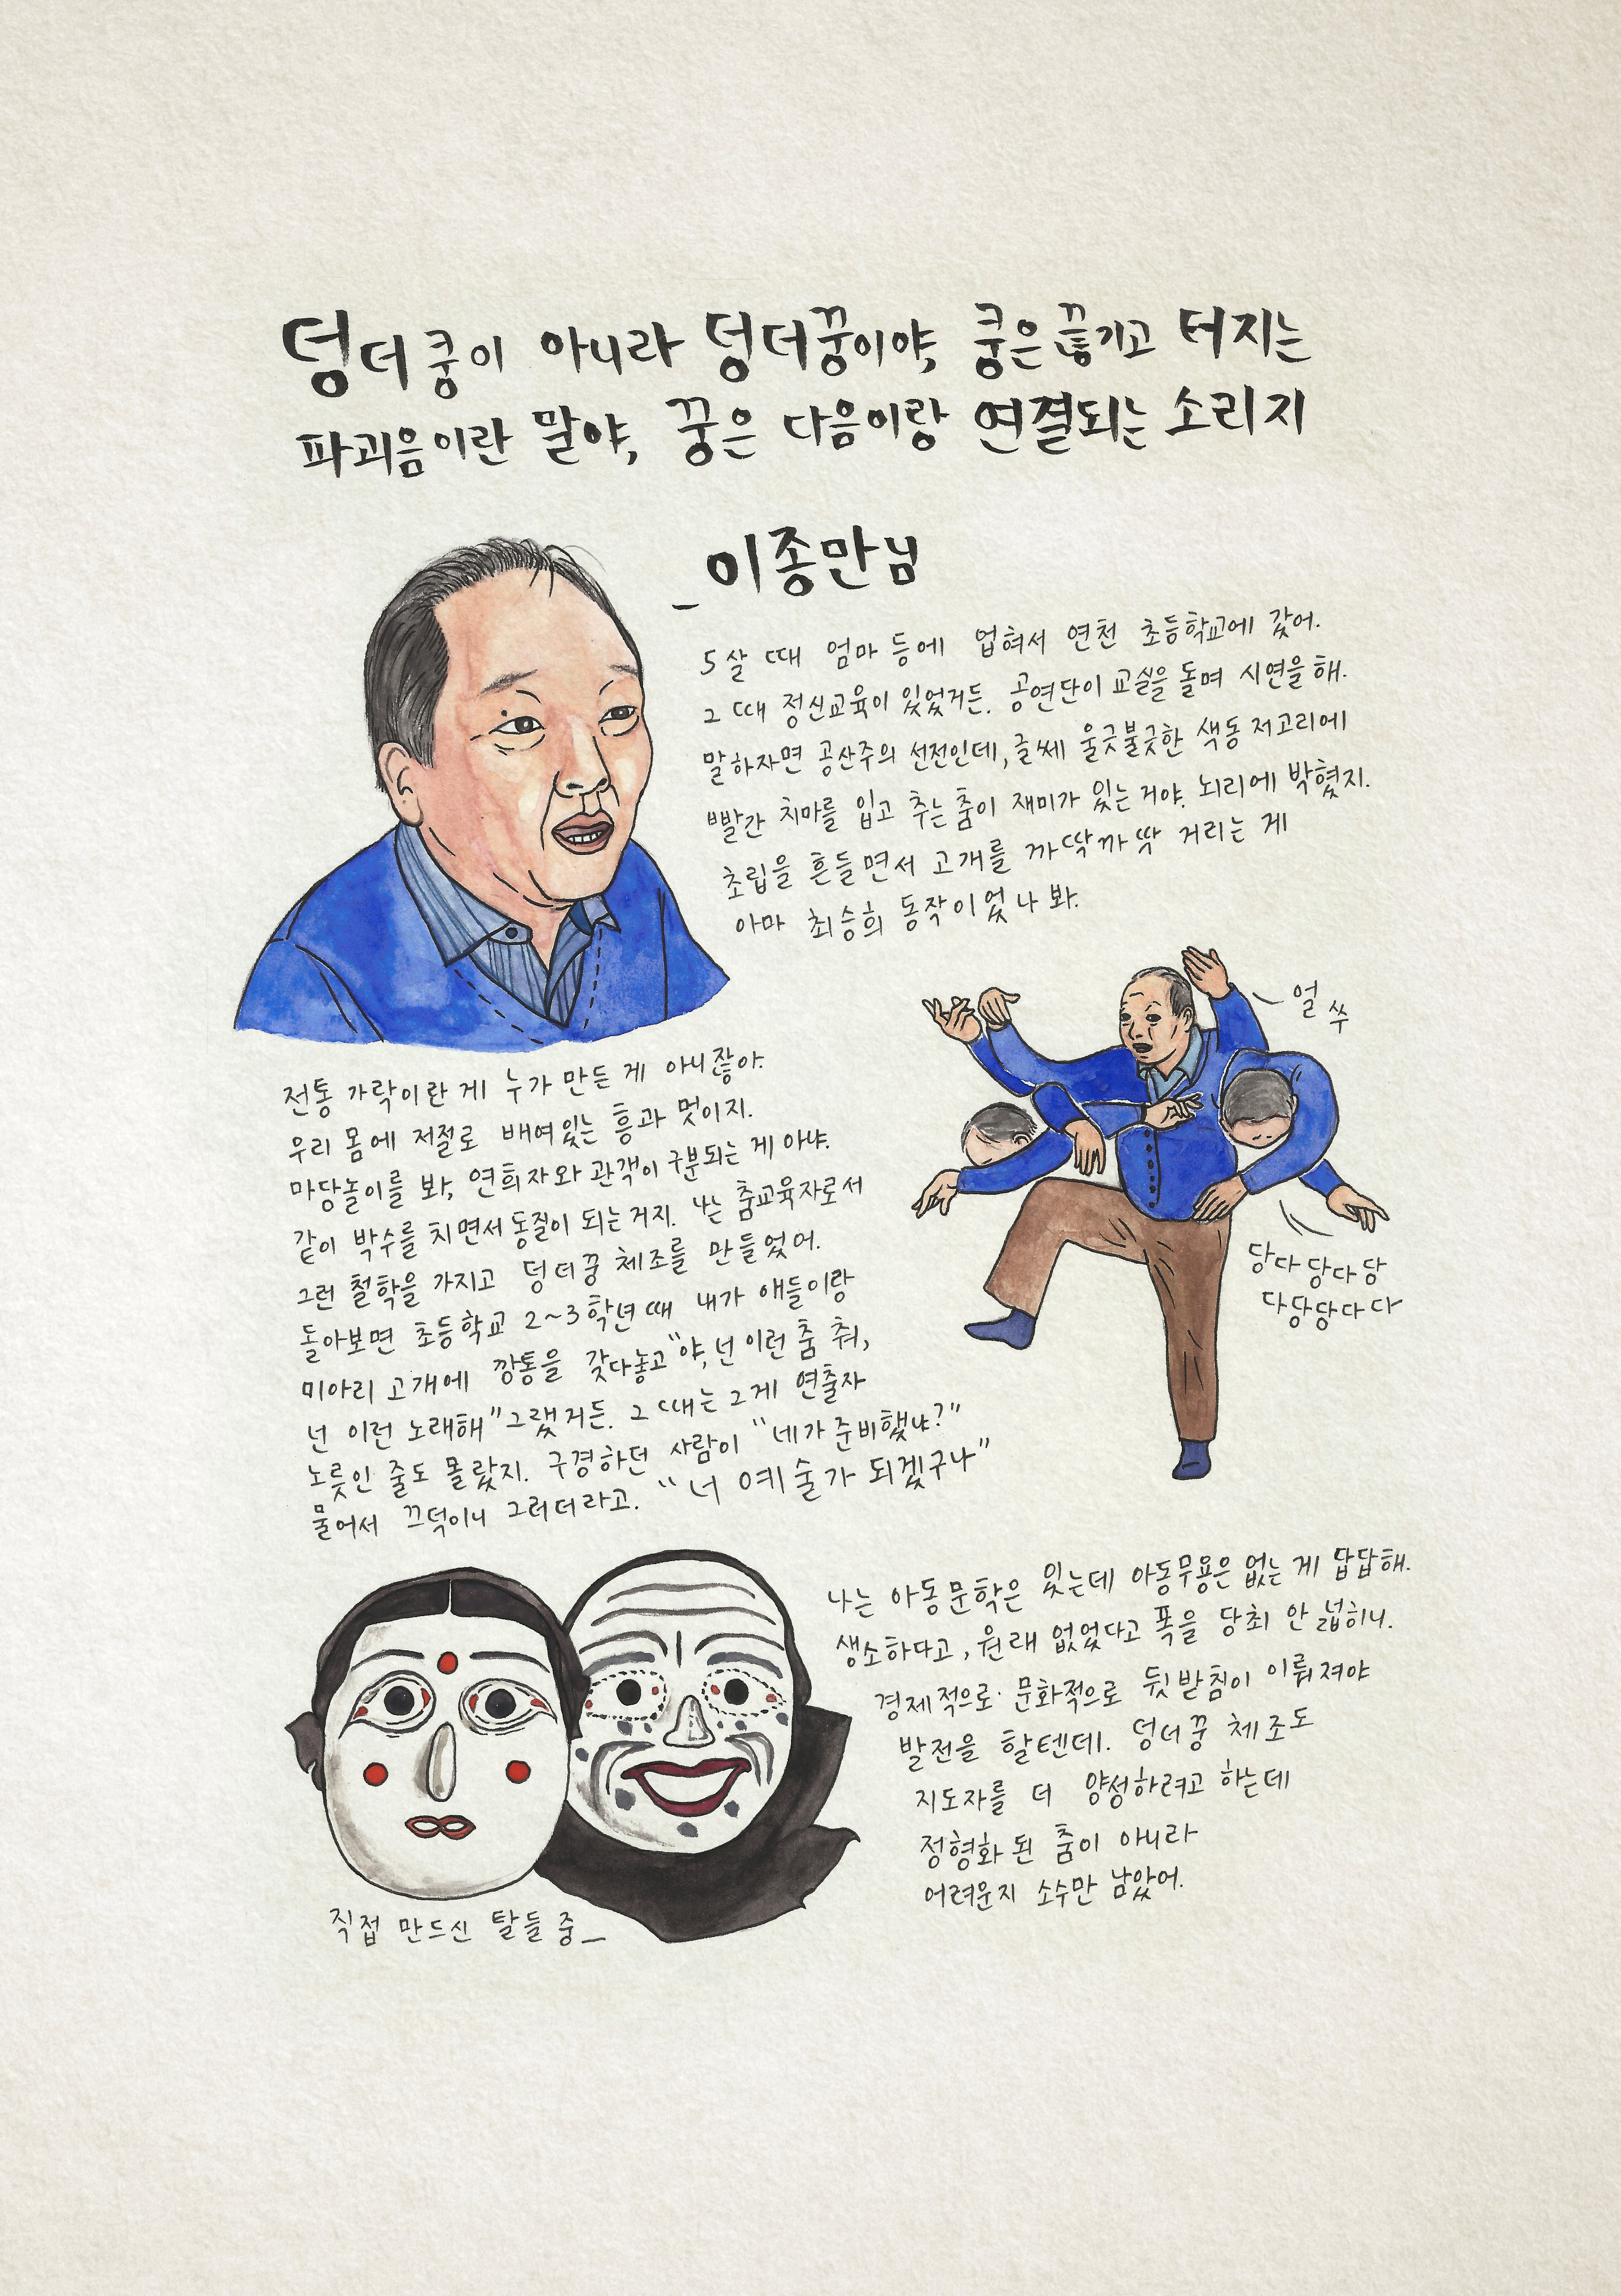 덩더쿵이 아니라 덩더꿍이야, 쿵은 끊기고 터지는
파괴음이란 말야, 꿍은 다음이랑 연결되는 소리지
_이종만님
5살 때 엄마 등에 업혀서 연천 초등학교에 갔어.
그 때 정신교육이 있었거든. 공연단이 교실을 돌며 시연을 해.
말하자면 공산주의 선전인데, 글쎄 울긋불긋한 색동 저고리에
빨간 치마를 입고 추는 춤이 재미가 있는거야. 뇌리에 박혔지.
초립을 흔들면서 고개를 까딱까딱 거리는 게
아마 최승희 동작이었나 봐.
얼쑤
당다당다당
다당당다다
전통 가락이란 게 누가 만든 게 아니잖아.
우리 몸에 저절로 배여있는 흥과 멋이지.
마당놀이를 봐, 연희자와 관객이 구분되는 게 아냐.
같이 박수를 치면서 동질이 되는거지. 나는 춤교육자로서
그런 철학을 가지고 덩더꿍 체조를 만들었어.
돌아보면 초등학교 2~3학년 때 내가 애들이랑
미아리 고개에 깡통을 갖다놓고 "야, 넌 이런 춤 춰,
넌 이런 노래해" 그랬거든. 그 때는 그게 연출자
노릇인 줄도 몰랐지. 구경하던 사람이 "네가 준비했냐?"
물어서 끄덕이니 그러더라고. "너 예술가 되겠구나"
나는 아동문학은 있는데 아동무용은 없는 게 답답해.
생소하다고, 원래 없었다고 폭을 당최 안 넓히니.
경제적으로·문화적으로 뒷받침이 이뤄져야
발전을 할텐데. 덩더꿍 체조도
지도자를 더 양성하려고 하는데
정형화 된 춤이 아니라
어려운지 소수만 남았어.
직접 만드신 탈들 중_